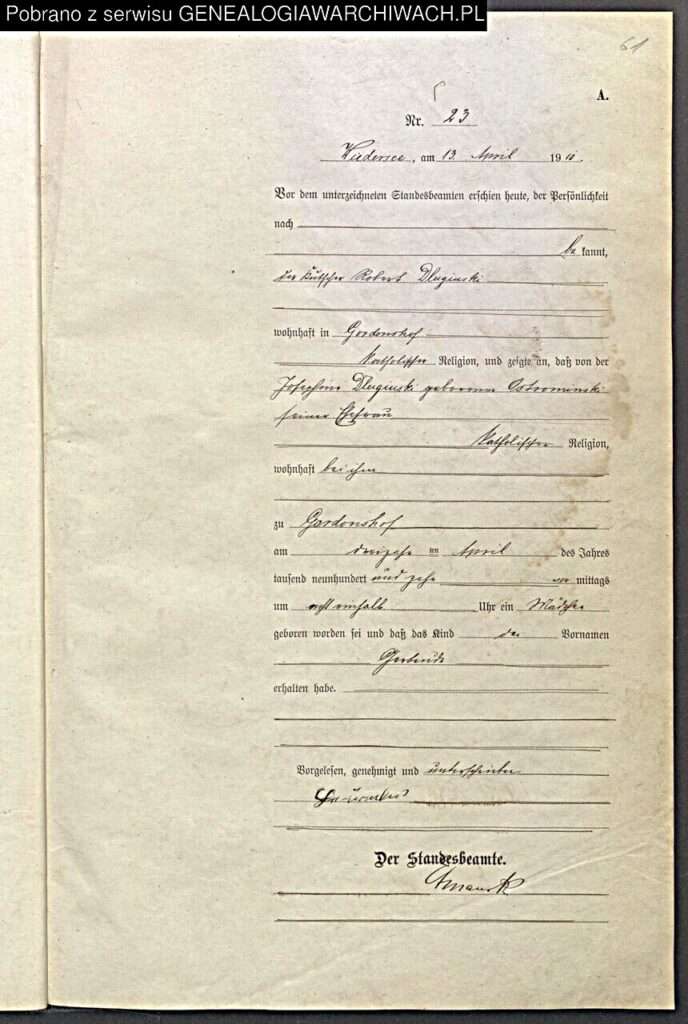 Pobrano z serwisu GENEALOGIAWARCHIWACH.PL
61
A.
Nr. 23
am 13. April 1910.
Vor dem unterzeichneten Standesbeamten erschien heute, der Persönlichkeit
nach
be kannt,
der Kutscher Robert Dluginski
wohnhaft in Gordonshof
katholischer Religion, und zeigte an, daß von der
Josephine Dluginski geborenen Ostrominski
seiner Ehefrau
katholischer Religion,
wohnhaft bei ihm
zu Gordonshof
am dreizehn ten April des Jahres
tausend neunhundert und zehn vor mittags
um acht einhalb Uhr ein Mädchen
geboren worden sei und daß das Kind den Vornamen
Gertrude
erhalten habe.
Vorgelesen, genehmigt und unterschrieben
Der Standesbeamte.